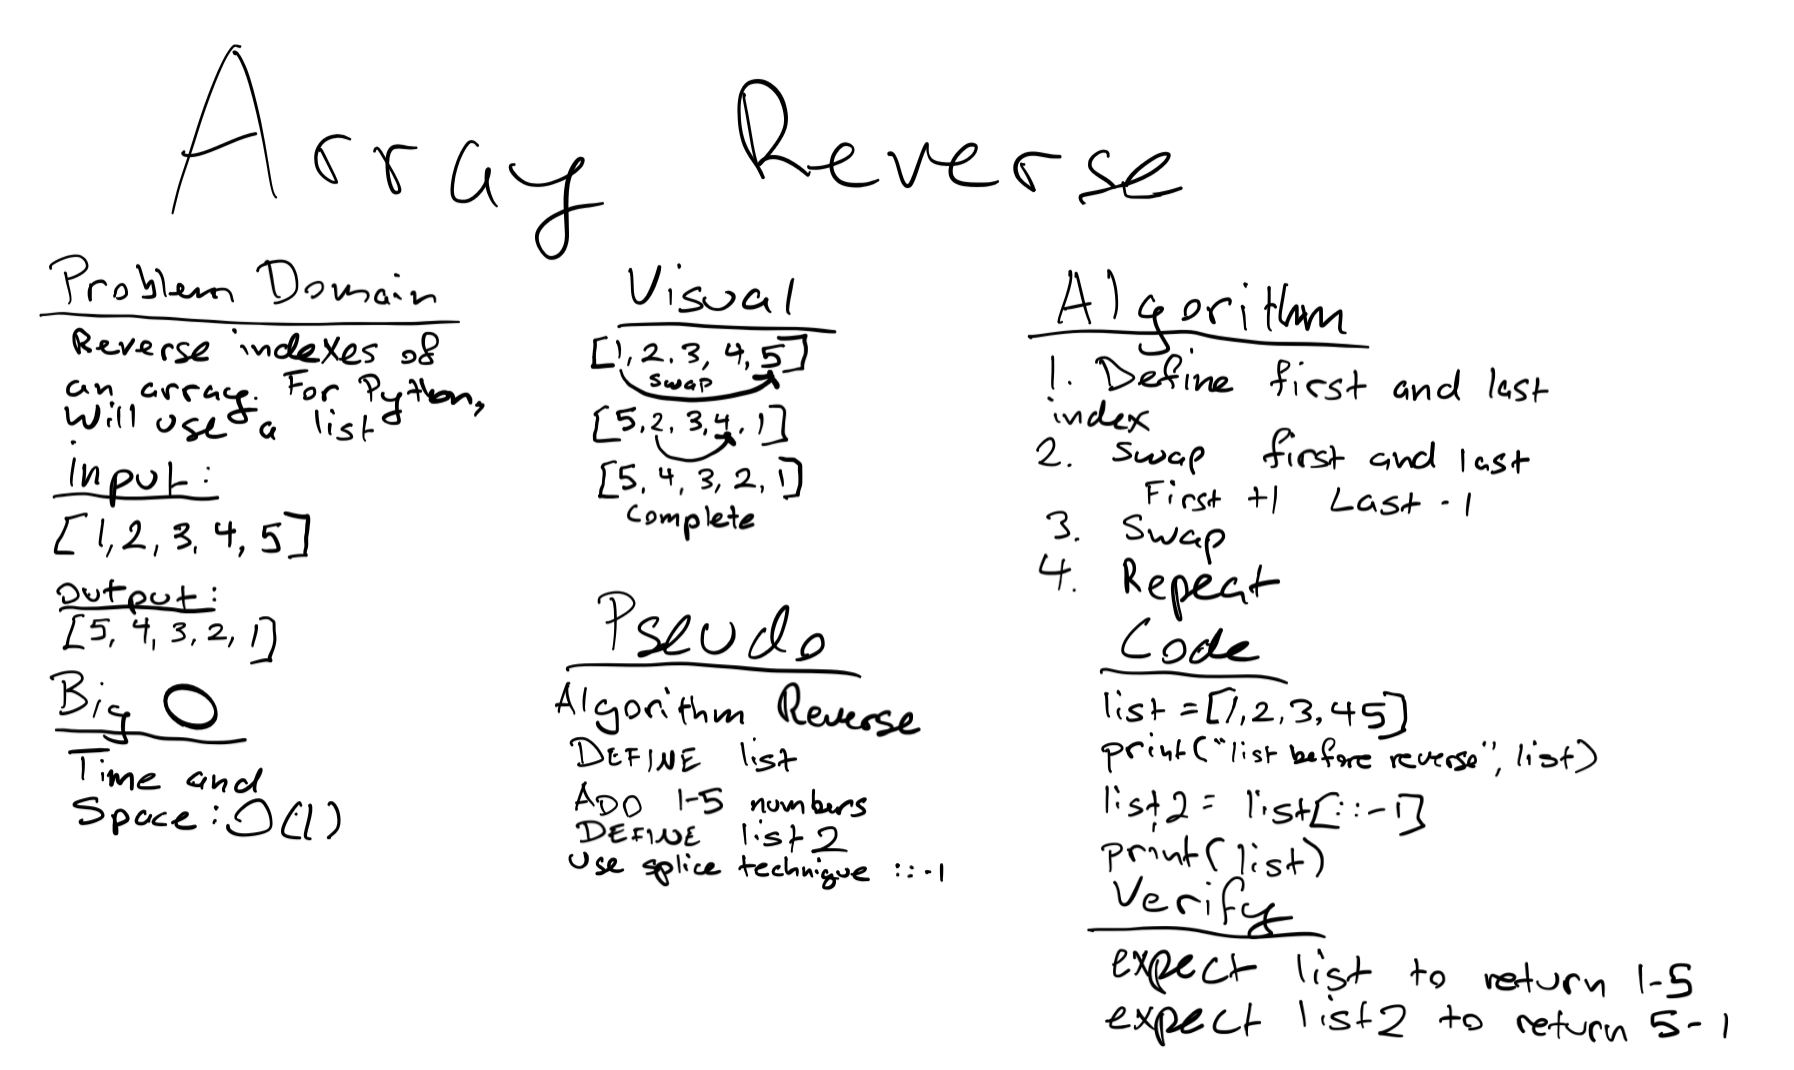 Array Reverse
Problem Domain
Reverse indexes of
an array. For Python,
will use a list
input:
[1,2,3,4,5]
output:
[5,4,3,2,1]
Big O
Time and
Space: O(1)
Visual
[1,2,3,4,5]
swap
[5,2,3,4,1]
[5,4,3,2,1]
complete
Pseudo
Algorithm Reverse
DEFINE list
ADD 1-5 numbers
DEFINE list2
use splice technique ::-1
Algorithm
1. Define first and last
index
2. swap first and last
First +1 Last -1
3. Swap
4. Repeat
Code
list = [1,2,3,45]
print("list before reverse", list)
list2 = list[::-1]
print(list)
Verify
expect list to return 1-5
expect list2 to return 5-1